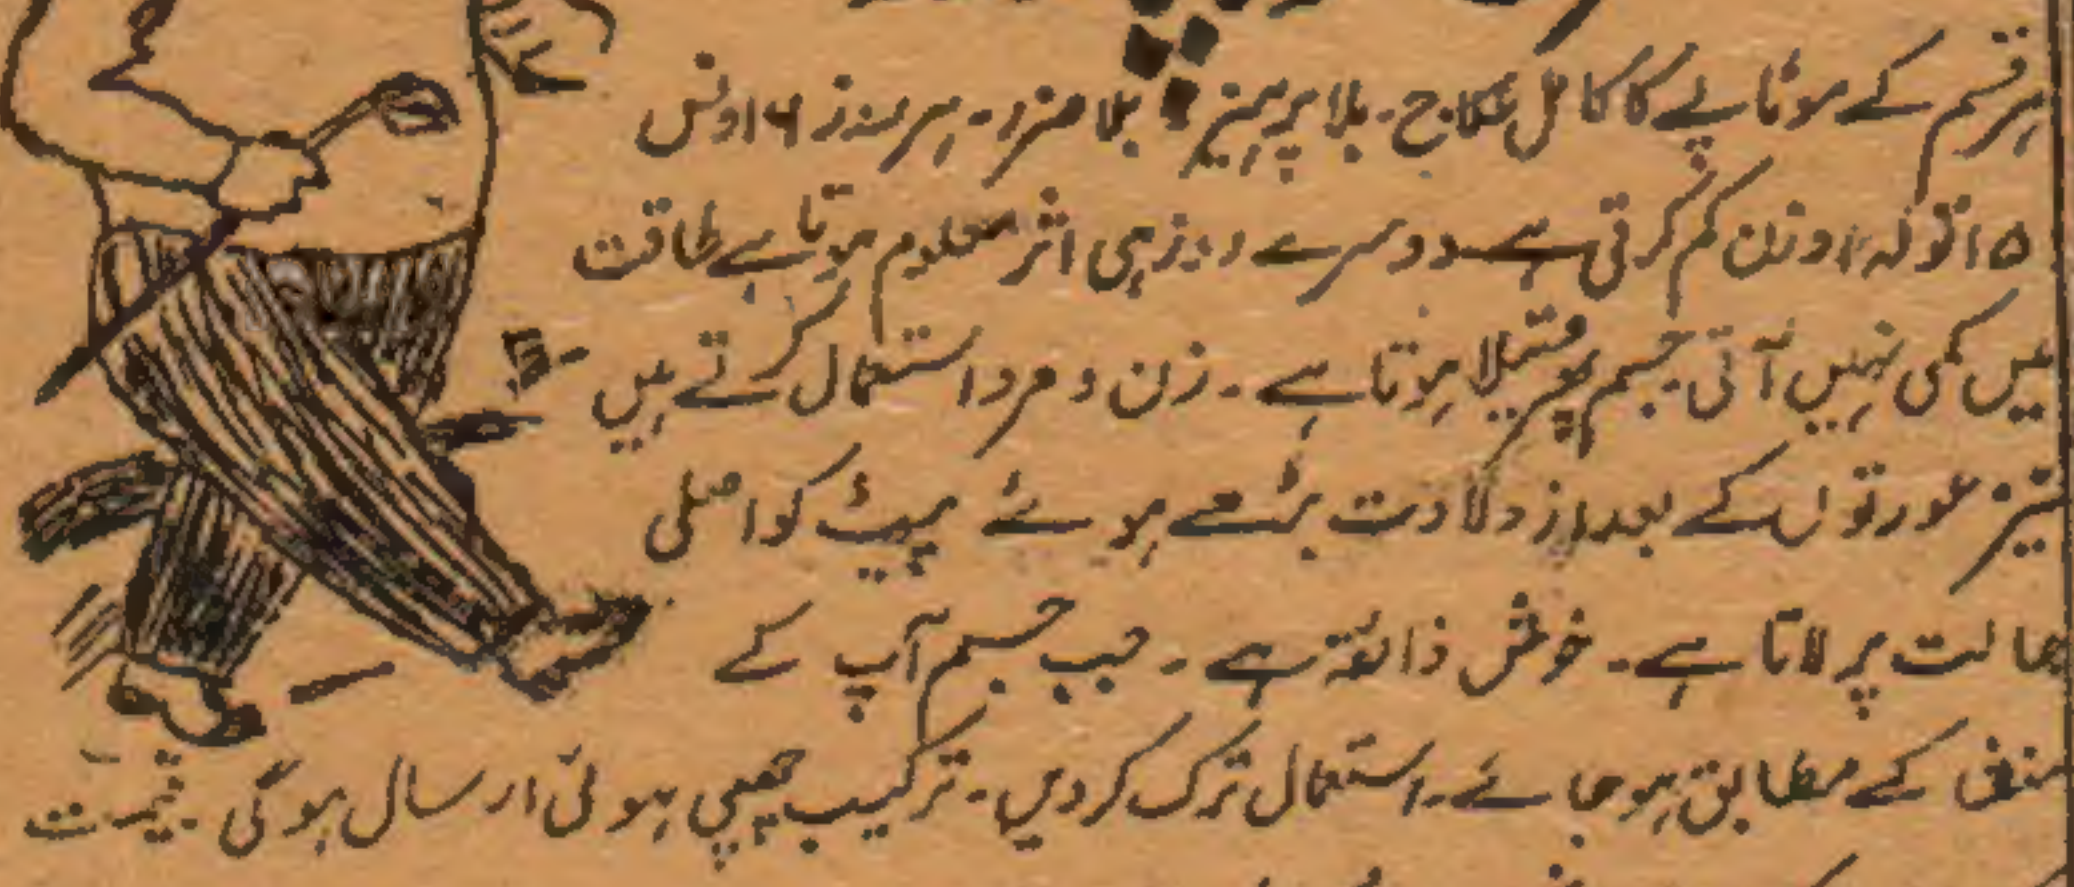 ہر قسم کے موٹاپے کا کامل علاج۔ بلا پرہیز بلا ضرر۔ ہر روز ۶ اونس
۱۵ تولہ وزن کم کرتی ہے دوسرے روز ہی اثر معلوم ہوتا ہے طاقت
میں کمی نہیں آتی جسم پھرتیلا ہوتا ہے۔ زن و مرد استعمال کرتے ہیں
نیز عورتوں کے بعد از ولادت بڑھے ہوئے پیٹ کو اصلی
حالت پر لاتا ہے۔ خوش ذائقہ ہے۔ جب جسم آپ کے
منشا کے مطابق ہو جائے۔ استعمال ترک کر دیں۔ ترکیب چھپی ہوئی ارسال ہوگی۔ قیمت